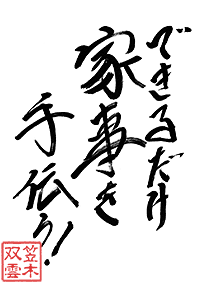 できるだけ
家事を
手伝う!
笠木
双雲